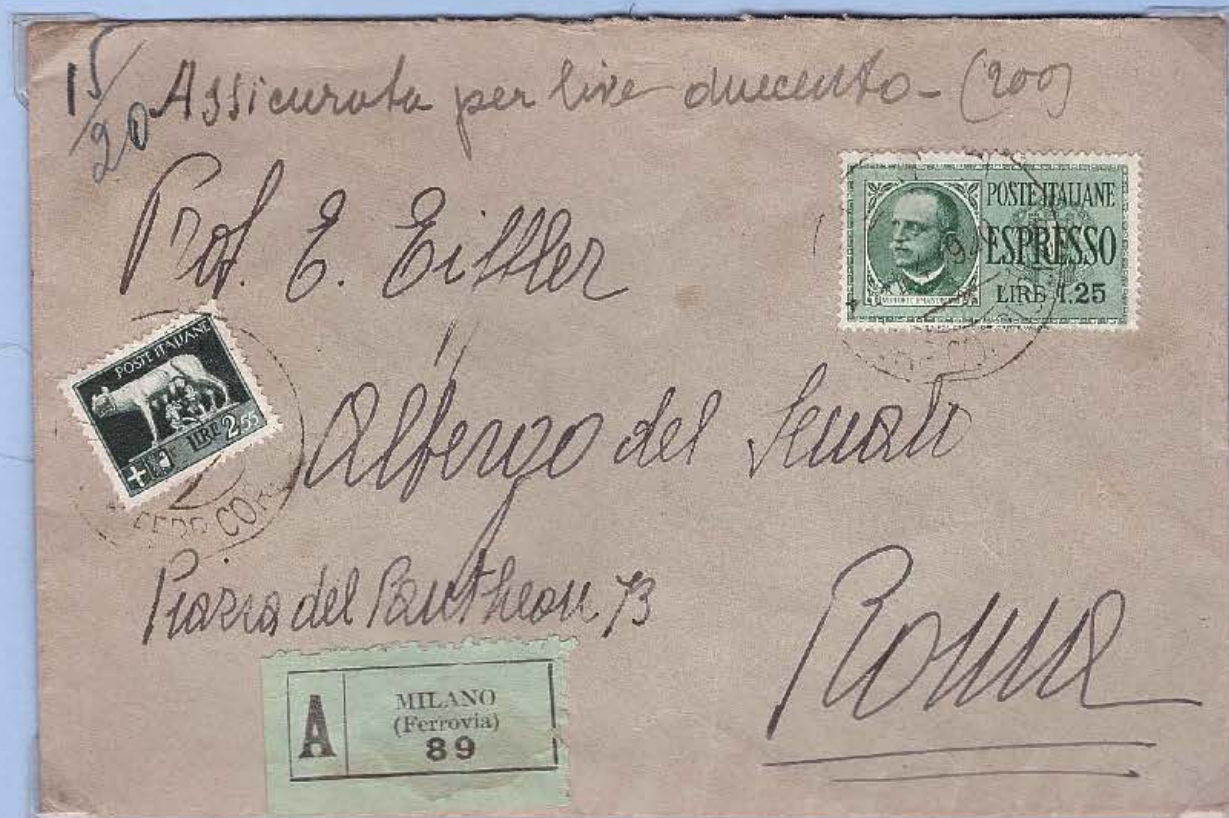 15/20 Assicurata per lire duecento - (200)
Prof. E. Eittler
POSTE ITALIANE
ESPRESSO
LIRE 1.25
POSTE ITALIANE
LIRE 2,55
Albergo del Senato
Piazza del Pantheon 73
Roma
A
MILANO
(Ferrovia)
89